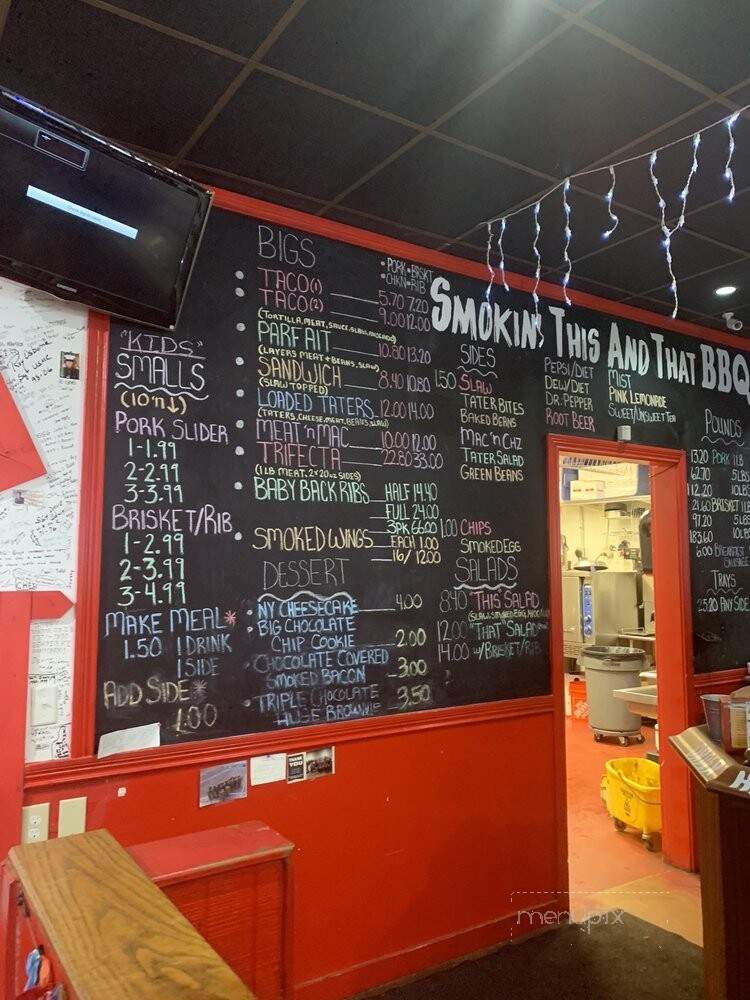 "KIDS"
SMALLS
(10'n↓)
PORK SLIDER
1-1.99
2-2.99
3-3.99
BRISKET/RIB
1-2.99
2-3.99
3-4.99
MAKE MEAL*
1.50 1 DRINK
1 SIDE
ADD SIDE*
1.00
BIGS
•PORK •BRSKT
•CHKN •RIB
TACO(1) 5.70 7.20
TACO(2) 9.00 12.00
(TORTILLA, MEAT, SAUCE, SLAW,
PARFAIT 10.80 13.20
(LAYERS MEAT & BEANS, SLAW)
SANDWICH 8.40 10.80
(SLAW TOPPED)
LOADED TATERS 12.00 14.00
(TATERS, CHEESE, MEAT, BEANS, SLAW)
MEAT 'n MAC 10.00 12.00
TRIFECTA 22.80 33.00
(1 LB MEAT, 2 20oz SIDES)
BABY BACK RIBS HALF 14.40
FULL 24.00
3PK 66.00
SMOKED WINGS EACH 1.00
16/ 12.00
DESSERT
NY CHEESECAKE 4.00
BIG CHOCOLATE
CHIP COOKIE 2.00
CHOCOLATE COVERED
SMOKED BACON 3.00
TRIPLE CHOCOLATE
HUGE BROWNIE 3.50
SMOKIN' THIS AND THAT BBQ
SIDES
1.50 SLAW
TATER BITES
BAKED BEANS
MAC 'n CHZ
TATER SALAD
GREEN BEANS
1.00 CHIPS
SMOKED EGG
SALADS
8.40 "THIS SALAD
(SLAW, SMOKED EGG,
12.00 "THAT" SALAD
14.00 w/BRISKET/RIB
PEPSI/DIET
DEW/DIET
DR. PEPPER
ROOT BEER
MIST
PINK LEMONADE
SWEET/UNSWEET TEA
POUNDS
13.20 PORK 1LB
62.70 5LBS
112.20 10LBS
21.60 BRISKET 1LB
97.20 5LBS
183.60 10LBS
6.00 BREAKFAST
SAUSAGE
TRAYS
25.20 ANY SIDE
THANK
YOU
menupix